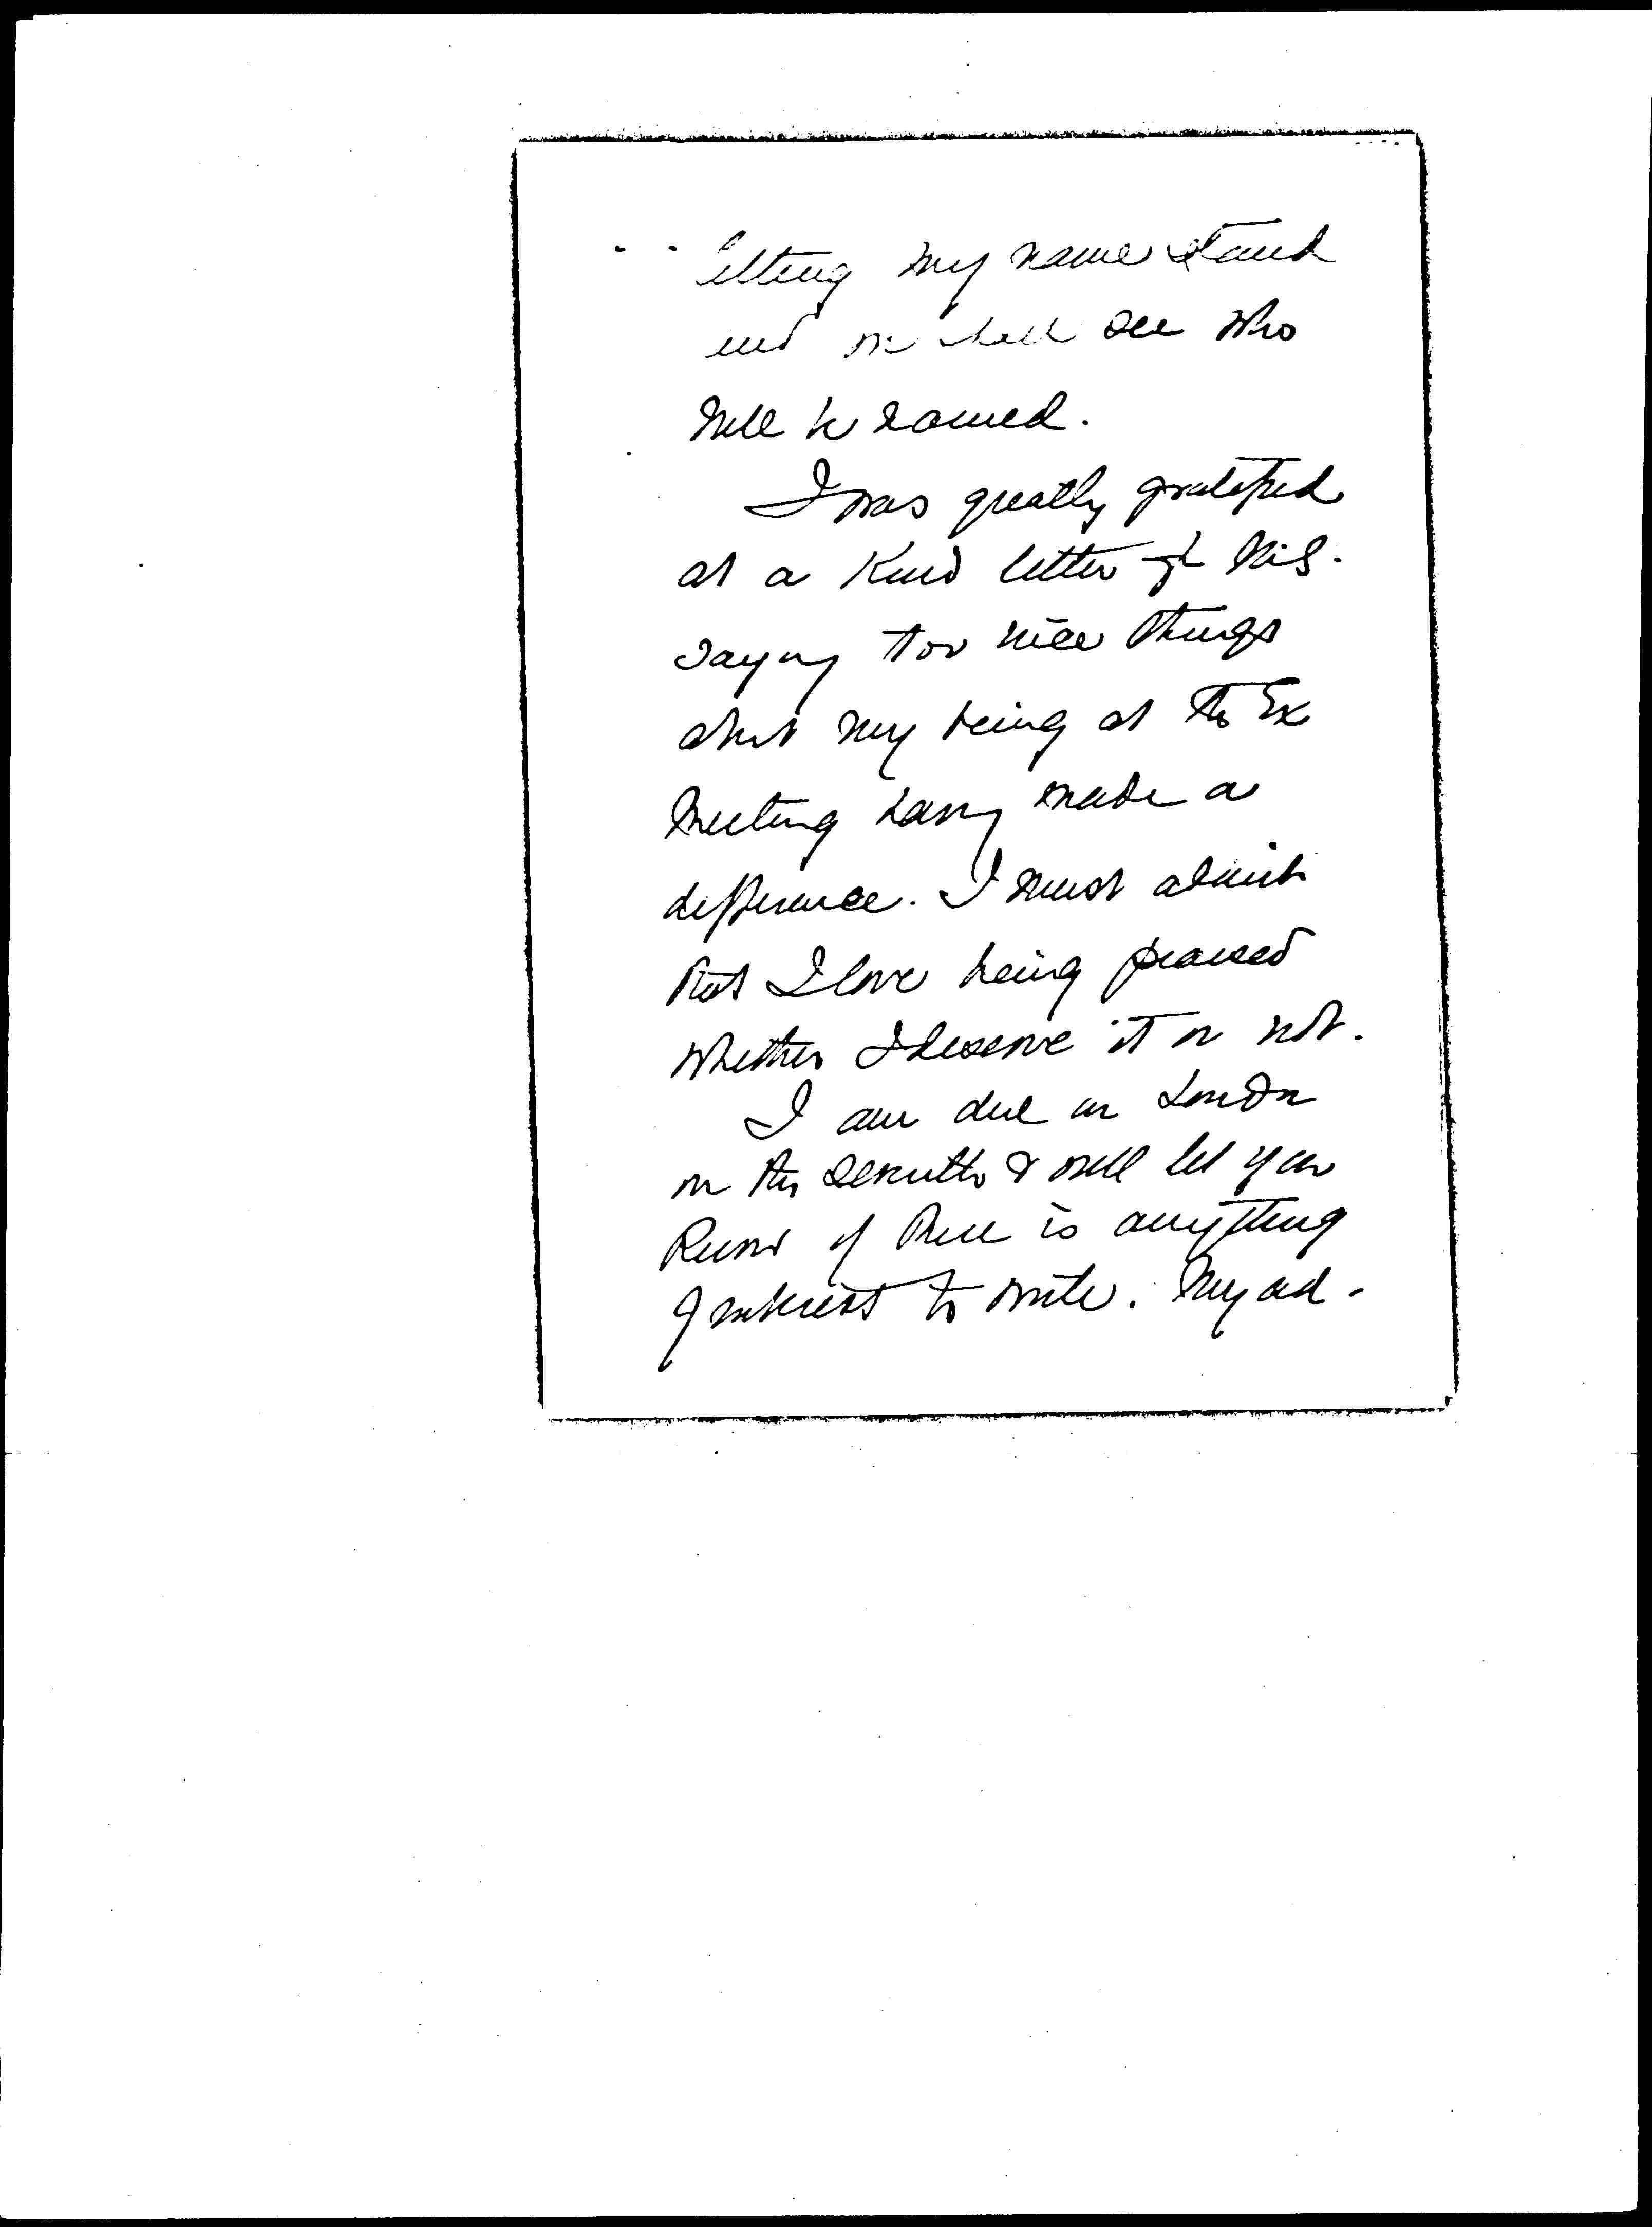 letting my name stand
and we shall see who
will be named.
I was greatly gratified
at a kind letter of his.
saying too nice things
about my being at the Ex
Meeting having made a
difference. I must admit
that I love being praised
whether I deserve it or not.
I am due in London
on the seventh & will let you
know if there is anything
of interest to write. My ad.